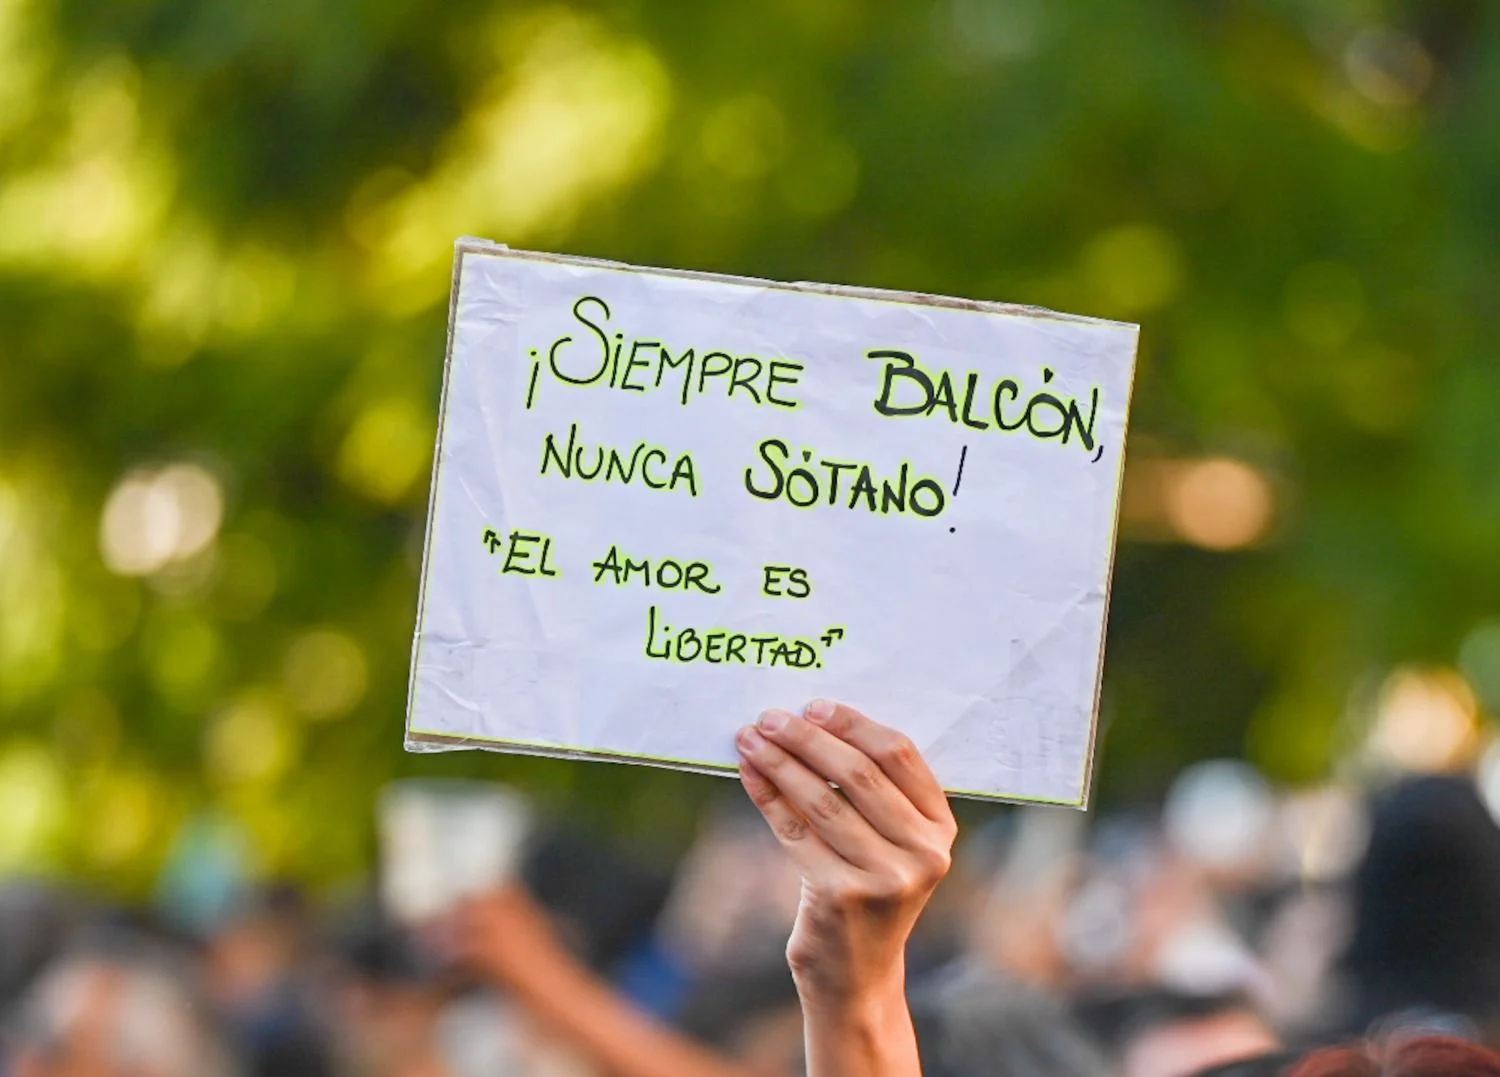 ¡SiEMPRE BALCÓN,
NUNCA SÓTANO!
"EL AMOR ES
LiBERTAD."